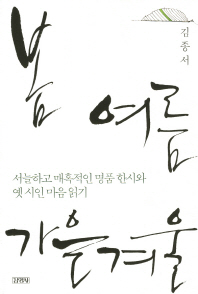 김종서
봄
여름
서늘하고 매혹적인 명품 한시와
옛 시인 마음 읽기
가을 겨울
김영사